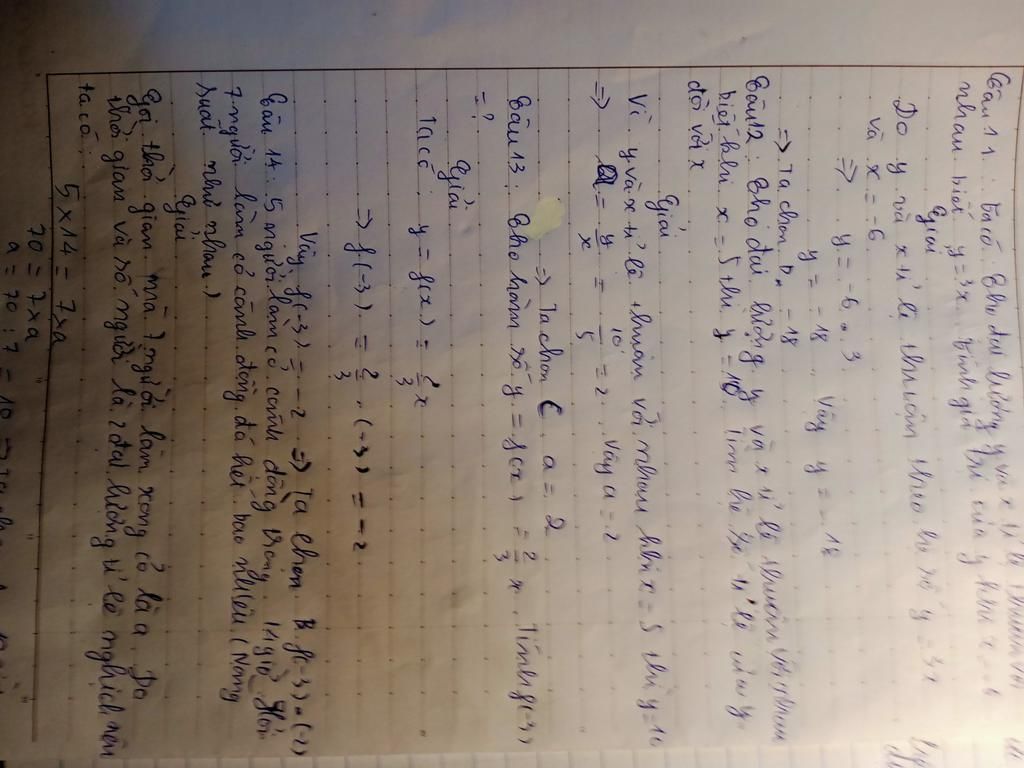 Câu 11: Ta có: Cho đại lượng y và x tỉ lệ thuận với
nhau biết y = 3x. Tính giá trị của y khi x = -6
Giải
Do y và x tỉ lệ thuận theo hệ số y = 3x
và x = -6
=> y = -6 . 3
y = -18 Vậy y = -18
=> Ta chọn D. -18
Câu 12: Cho đại lượng y và x tỉ lệ thuận với nhau
biết khi x = 5 thì y = 10. Tìm hệ số tỉ lệ của y
đối với x
Giải
Vì y và x tỉ lệ thuận với nhau khi x = 5 thì y = 10
=> a = y/x = 10/5 = 2. Vậy a = 2
=> Ta chọn C. a = 2
Câu 13: Cho hàm số y = f(x) = 2/3 x. Tính f(-3)
= ?
Giải
Ta có: y = f(x) = 2/3 x
=> f(-3) = 2/3 . (-3) = -2
Vậy f(-3) = -2 => Ta chọn B. f(-3) = (-2)
Câu 14: 5 người làm cỏ cánh đồng trong 14 giờ. Hỏi
7 người làm cỏ cánh đồng đó hết bao nhiêu (Năng
suất như nhau)
Giải
Gọi thời gian mà 7 người làm xong cỏ là a. Do
thời gian và số người là 2 đại lượng tỉ lệ nghịch nên
ta có:
5 x 14 = 7 x a
70 = 7 x a
a = 70 : 7 = 10 => Ta chọn